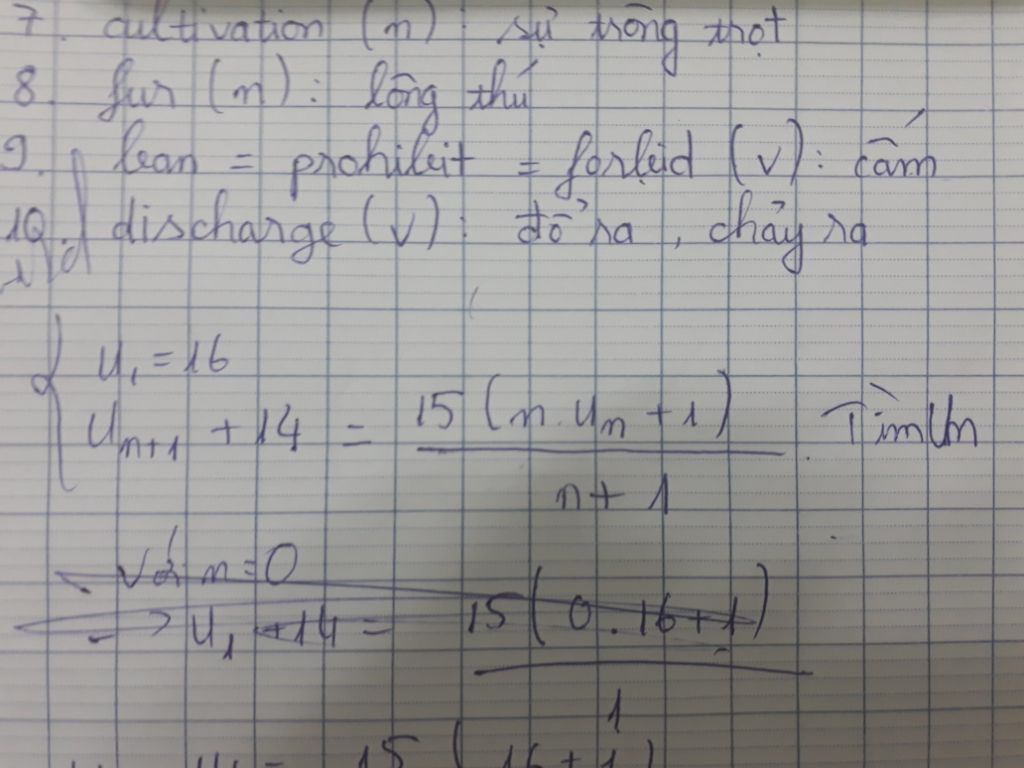 7. cultivation (n) : sự trồng trọt
8. fur (n) : lông thú
9. ban = prohibit = forbid (v) : cấm
10. discharge (v) : đổ ra, chảy ra
u₁ = 16
uₙ₊₁ + 14 = 15(n.uₙ + 1) / (n + 1) . Tìm uₙ
Với n = 0
→ u₁ + 14 = 15(0.16 + 1) / 1
15 (16 + 1)